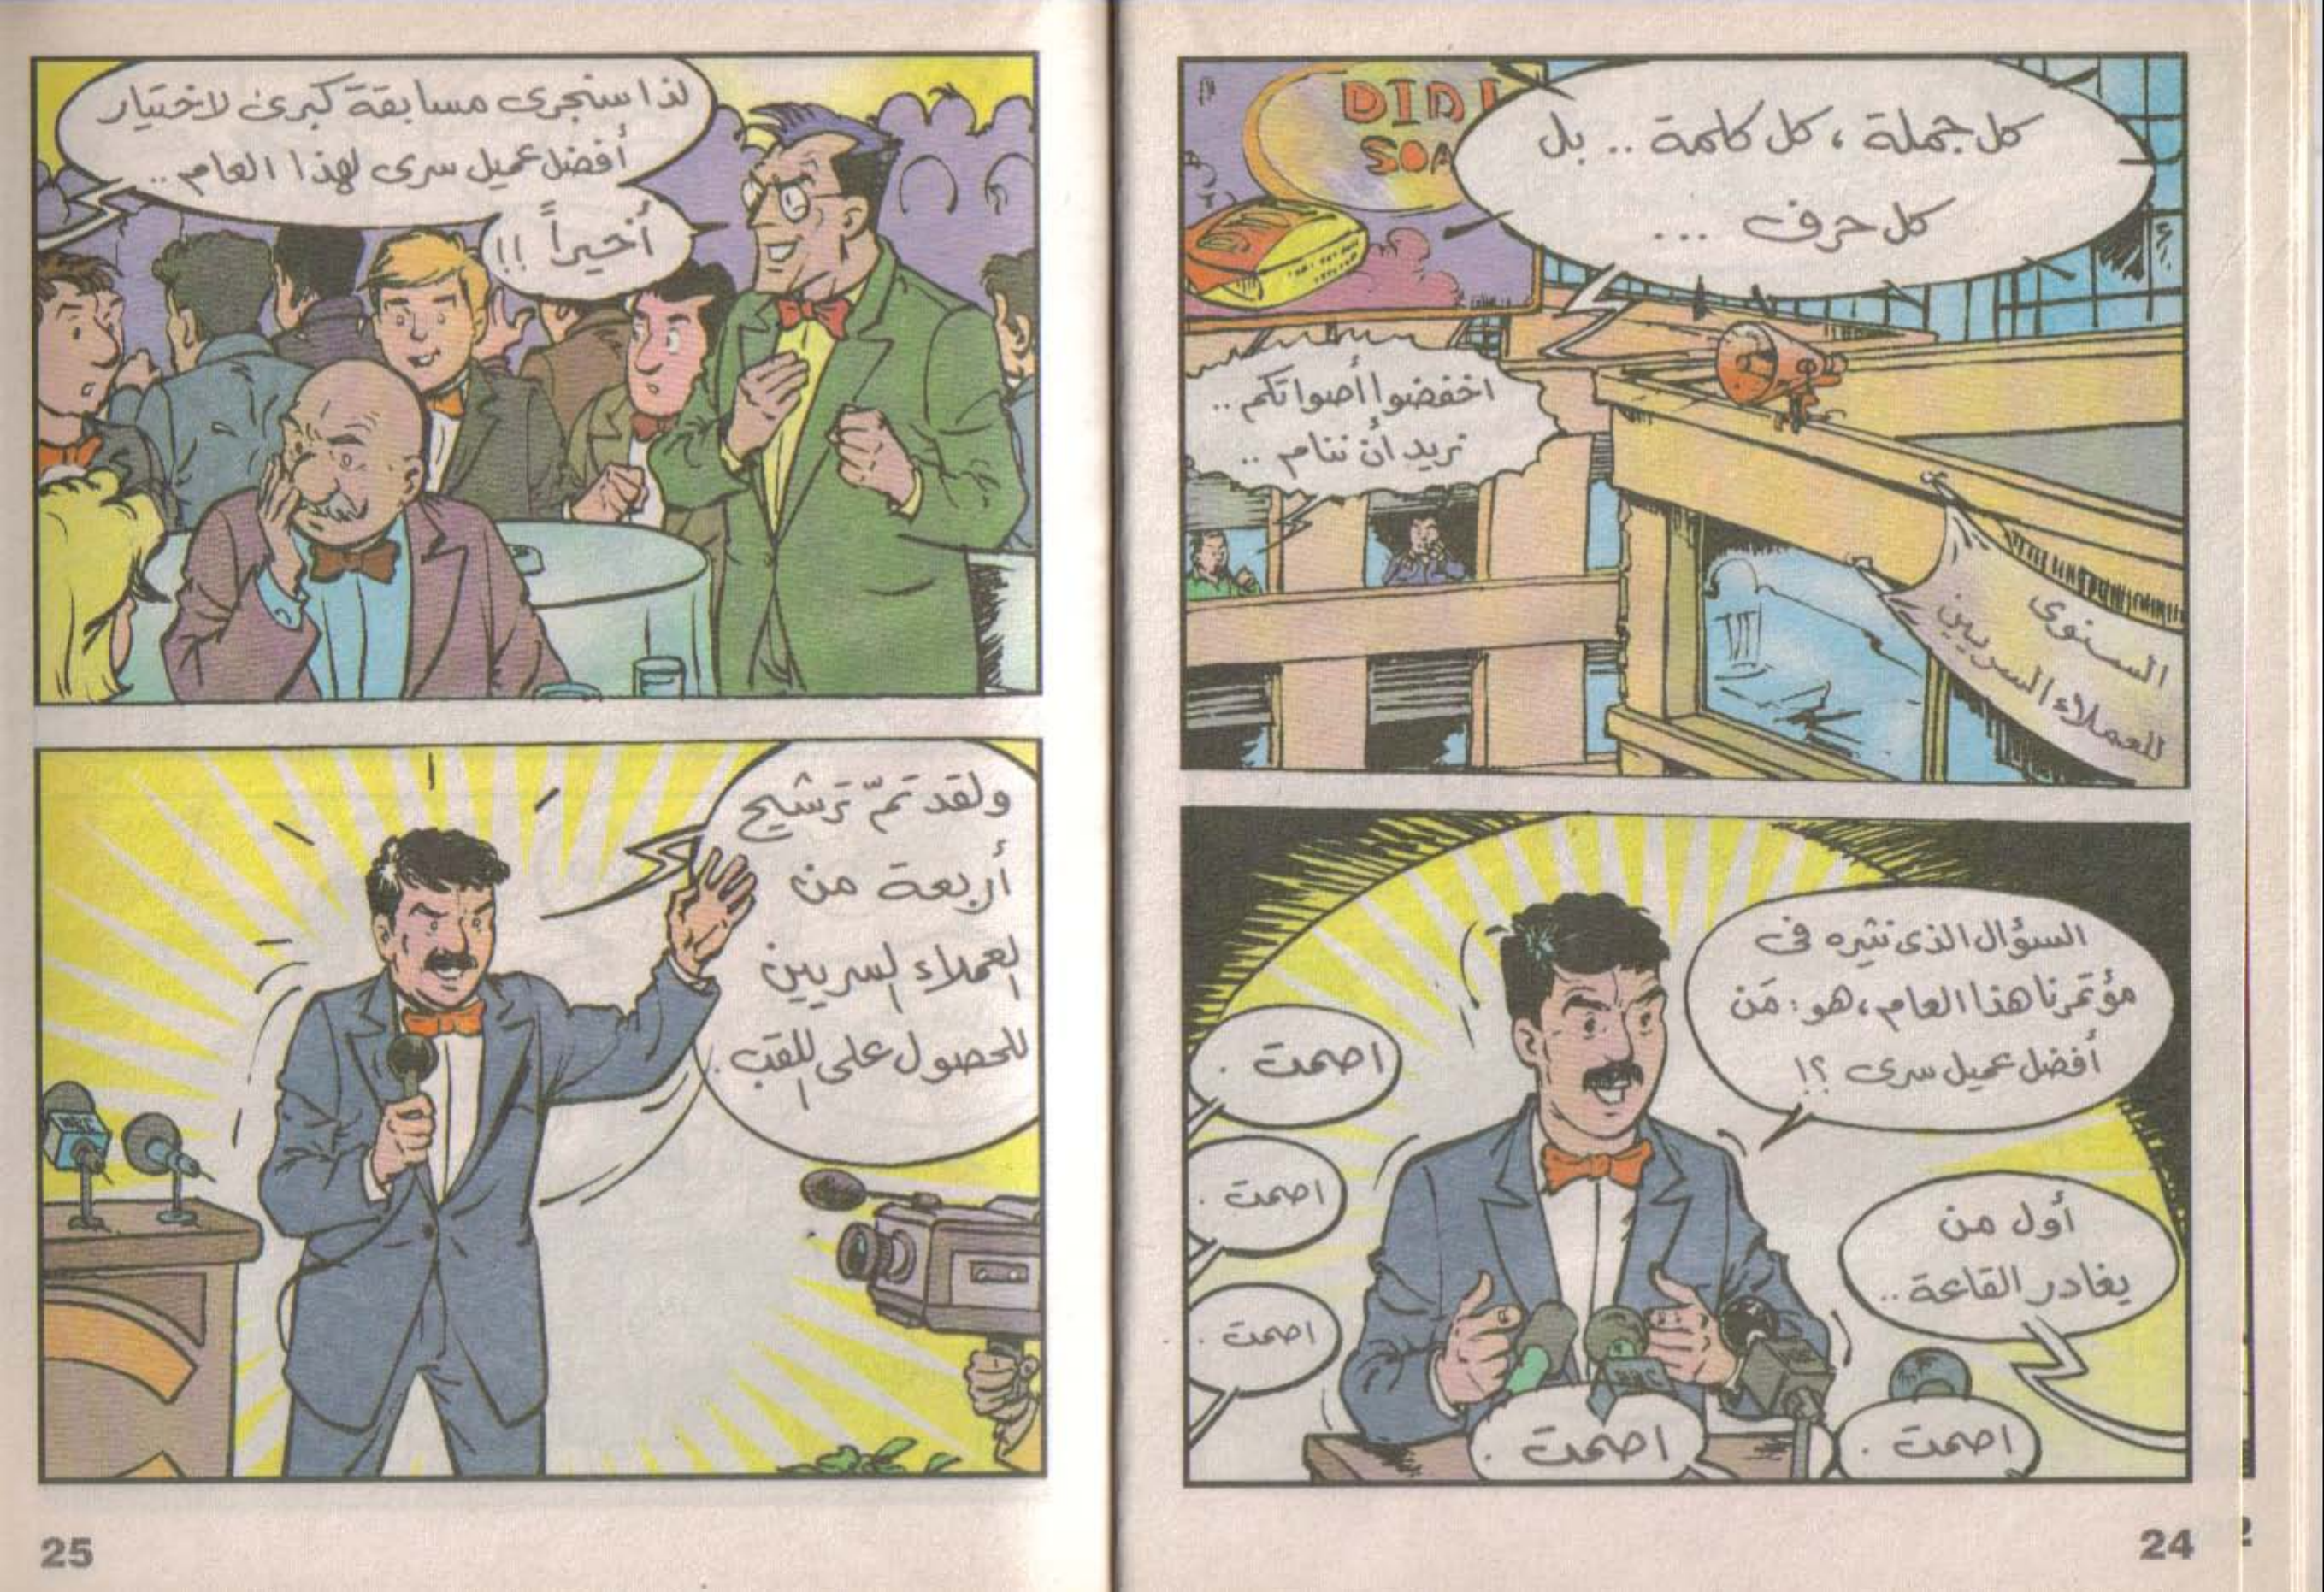 DIDI
SOA
كل جملة ، كل كلمة .. بل
كل حرف ...
اخفضوا أصواتكم ..
نريد أن ننام ..
السنوى
للعملاء السريين
السؤال الذى نثيره فى
مؤتمرنا هذا العام ، هو : مَن
أفضل عميل سرى ؟!
اصمت .
اصمت .
اصمت .
أول من
يغادر القاعة ..
اصمت .
اصمت .
24
لذا سنجرى مسابقة كبرى لاختيار
أفضل عميل سرى لهذا العام ..
أخيراً !!
ولقد تمّ ترشيح
أربعة من
العملاء السريين
للحصول على اللقب .
25